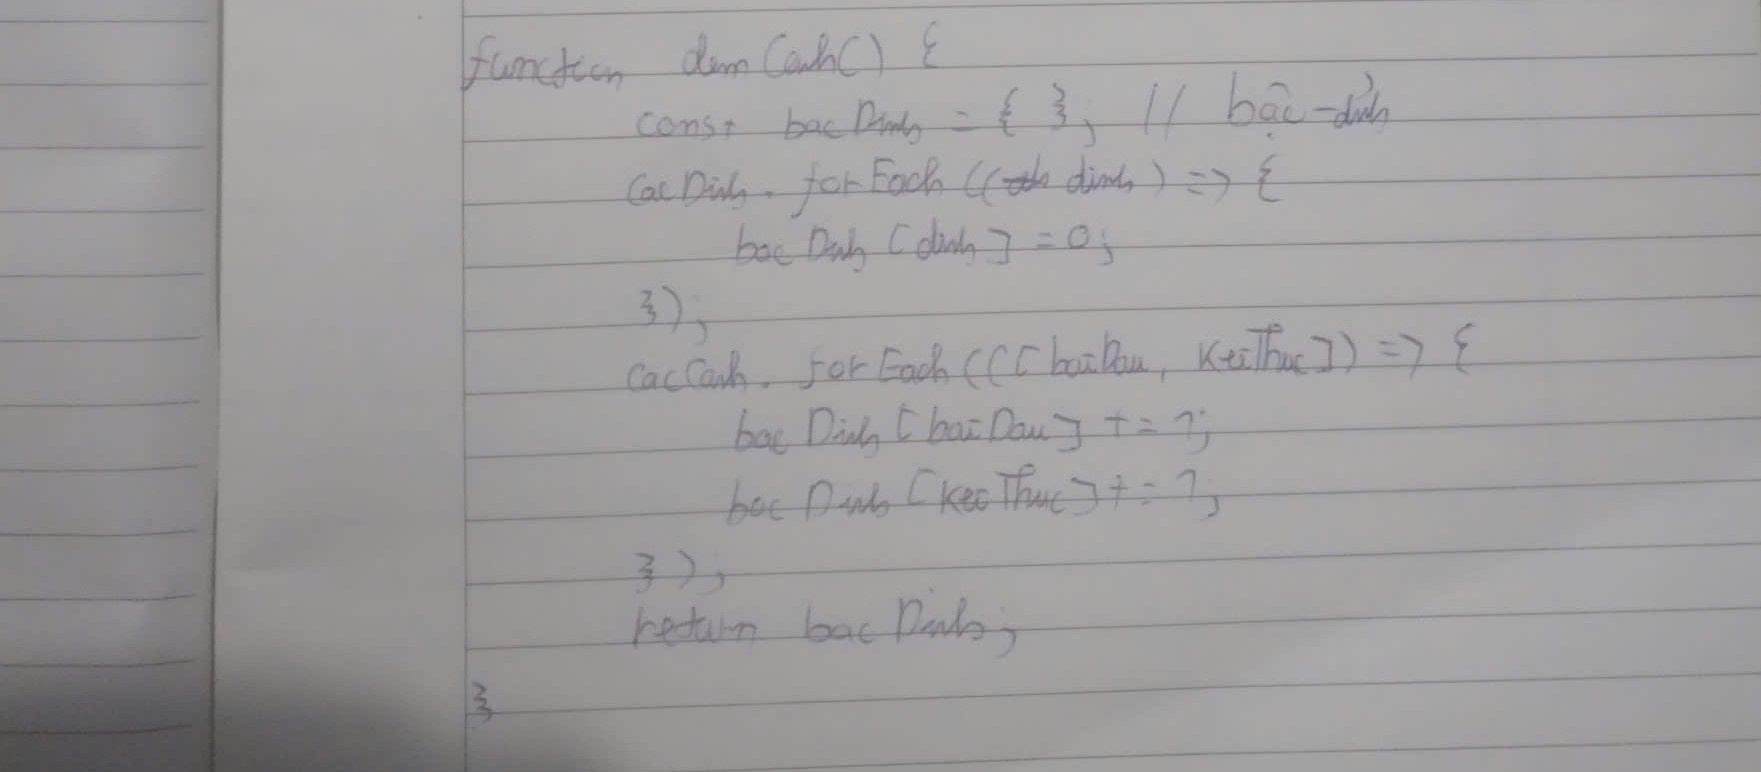 function demCanh() {
const bacDinh = { }; // bậc-đỉnh
CacDinh.forEach((dinh) => {
bacDinh[dinh] = 0;
});
cacCanh.forEach(([batDau, ketThuc]) => {
bacDinh[batDau] += 1;
bacDinh[ketThuc] += 1;
});
return bacDinh;
}